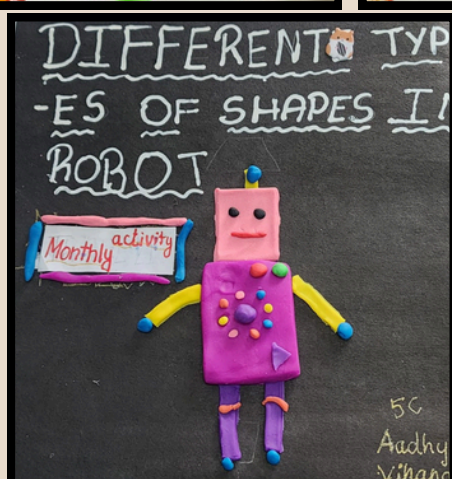 DIFFERENT TYP
-ES OF SHAPES IN
ROBOT
Monthly activity
5C
Aadhy
Vihang